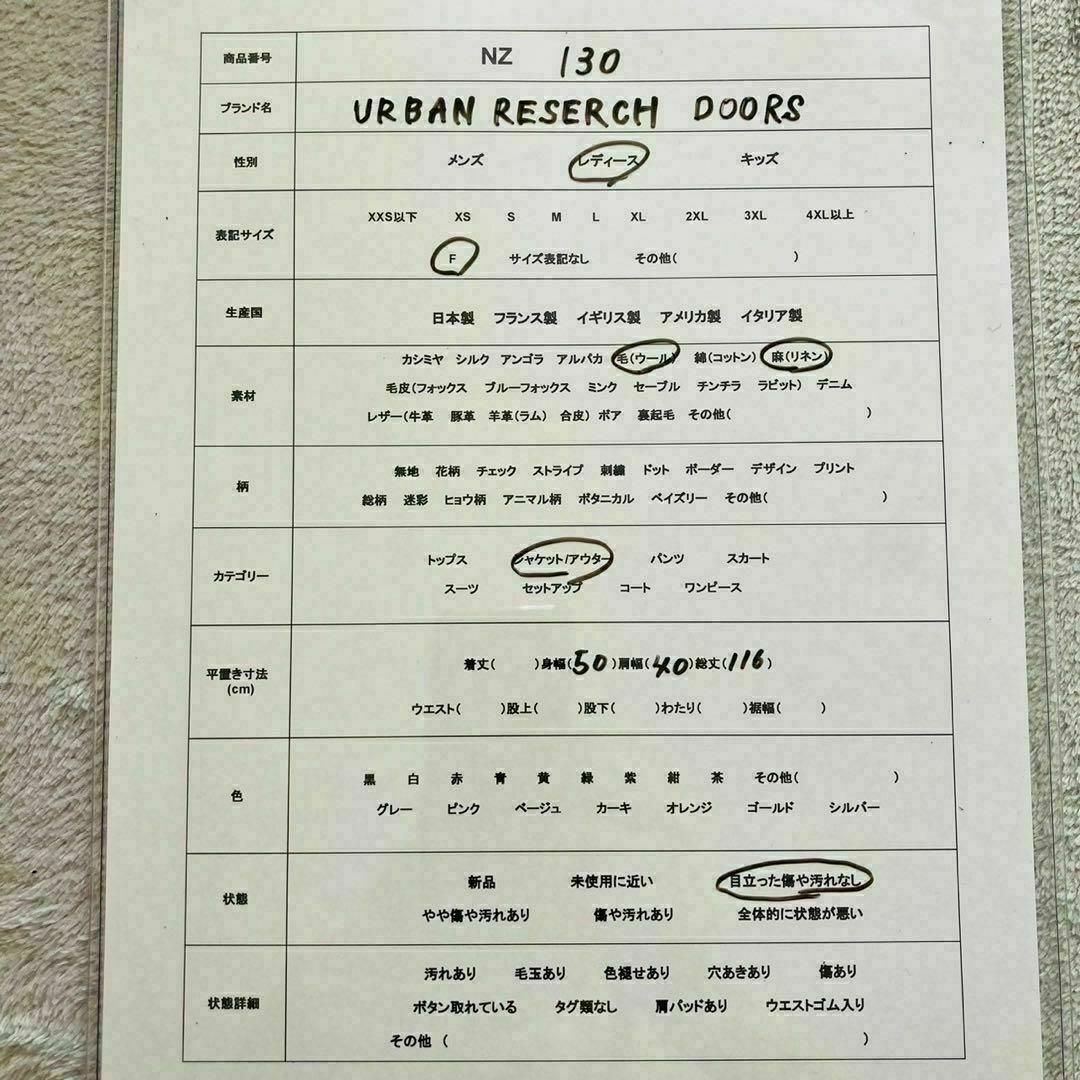 商品番号 NZ 130
ブランド名 URBAN RESERCH DOORS
性別 メンズ レディース キッズ
表記サイズ
XXS以下 XS S M L XL 2XL 3XL 4XL以上
F サイズ表記なし その他( )
生産国 日本製 フランス製 イギリス製 アメリカ製 イタリア製
素材
カシミヤ シルク アンゴラ アルパカ 毛(ウール) 綿(コットン) 麻(リネン)
毛皮(フォックス ブルーフォックス ミンク セーブル チンチラ ラビット) デニム
レザー(牛革 豚革 羊革(ラム) 合皮) ボア 裏起毛 その他( )
柄
無地 花柄 チェック ストライプ 刺繍 ドット ボーダー デザイン プリント
総柄 迷彩 ヒョウ柄 アニマル柄 ボタニカル ペイズリー その他( )
カテゴリー
トップス ジャケット/アウター パンツ スカート
スーツ セットアップ コート ワンピース
平置き寸法
(cm)
着丈( )身幅(50)肩幅(40)総丈(116)
ウエスト( )股上( )股下( )わたり( )裾幅( )
色
黒 白 赤 青 黄 緑 紫 紺 茶 その他( )
グレー ピンク ベージュ カーキ オレンジ ゴールド シルバー
状態
新品 未使用に近い 目立った傷や汚れなし
やや傷や汚れあり 傷や汚れあり 全体的に状態が悪い
状態詳細
汚れあり 毛玉あり 色褪せあり 穴あきあり 傷あり
ボタン取れている タグ類なし 肩パッドあり ウエストゴム入り
その他 ( )